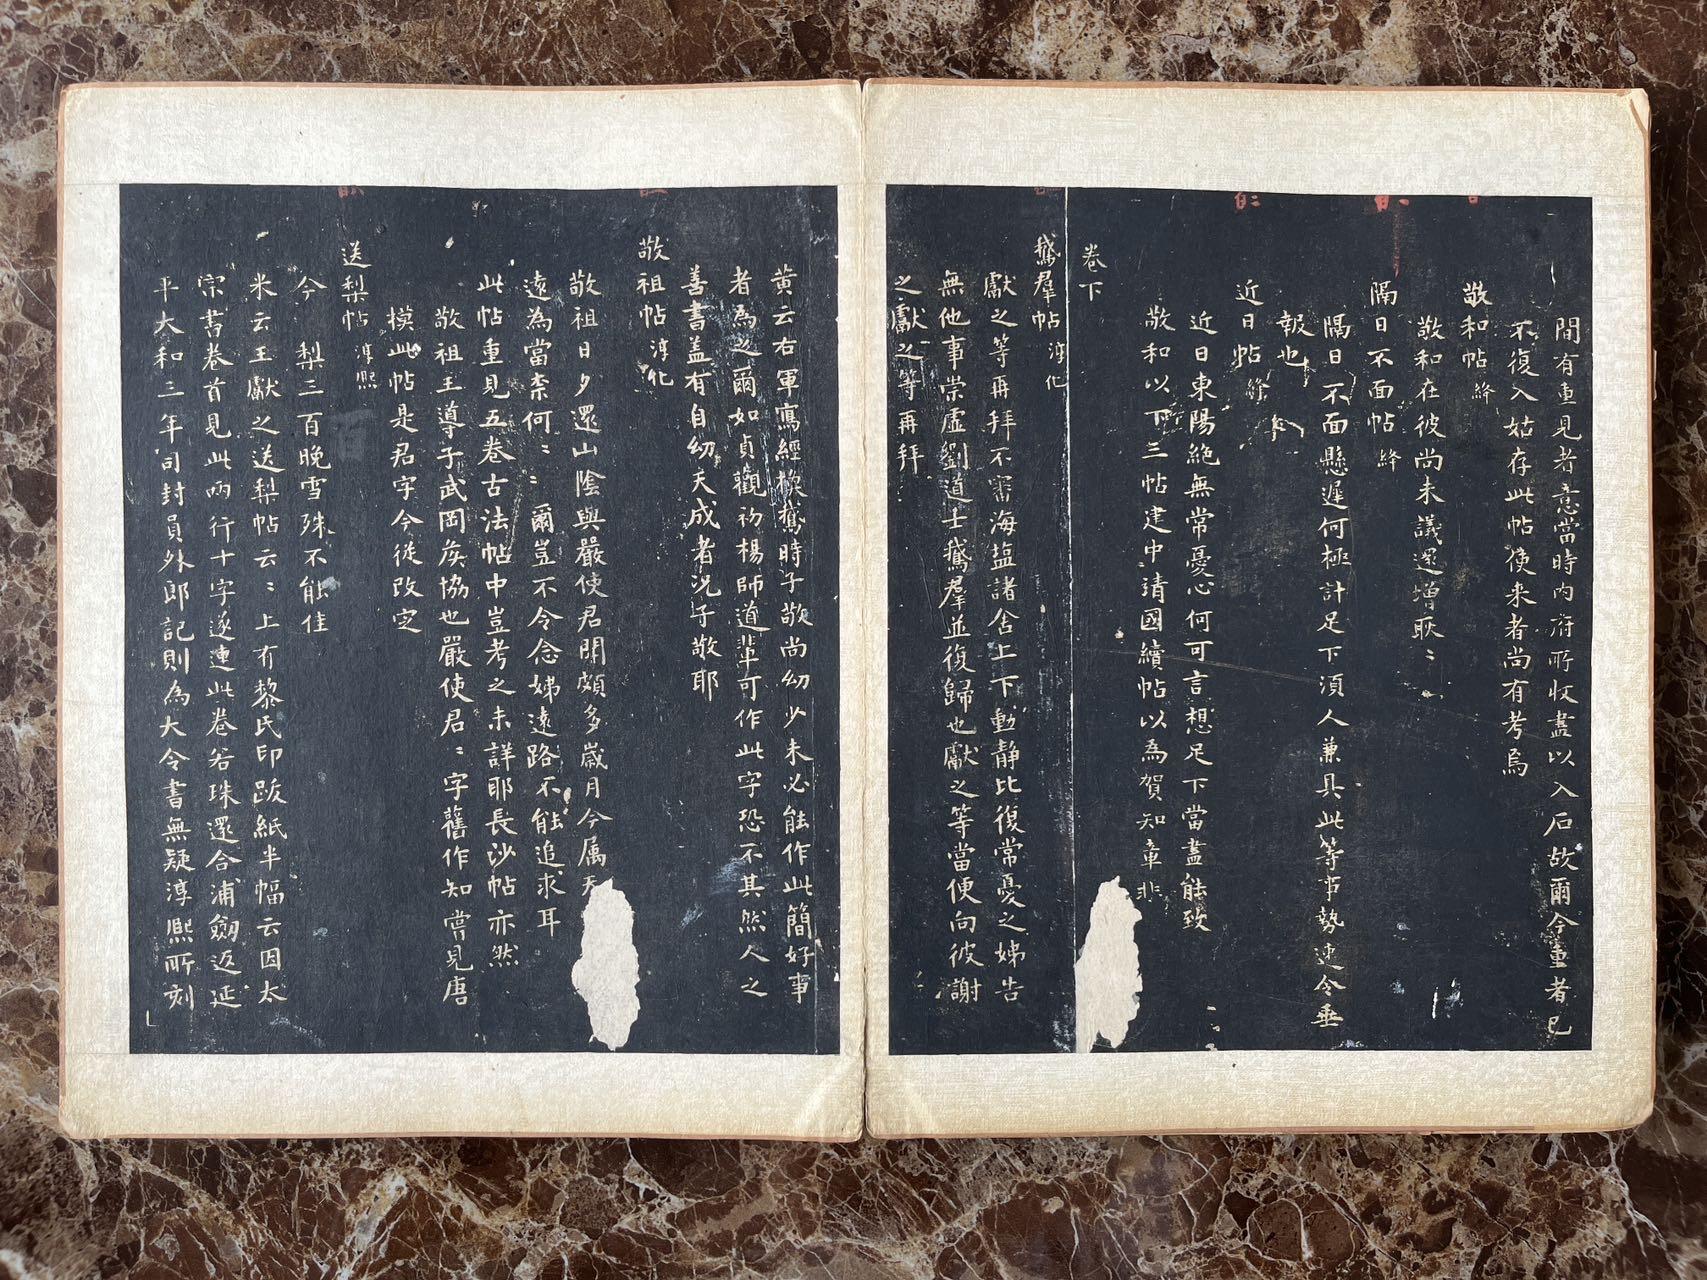 間有重見者意當時內府所收盡以入石故爾今重者已
不復入姑存此帖使来者尚有考焉
敬和帖 絳
敬和在彼尚未議還增耿〻
隔日不面帖 絳
隔日不面懸遲何極計足下須人兼具此等事勢速令垂
報也
近日帖 絳
近日東陽絶無常憂心何可言想足下當盡能致
敬和以下三帖建中靖國續帖以為賀知章非
卷下
鵞羣帖 淳化
獻之等再拜不審海塩諸舍上下動静比復常憂之姊告
無他事崇虛劉道士鵞羣並復歸也獻之等當便向彼謝
之獻之等再拜
黃云右軍寫經換鵞時子敬尚幼少未必能作此簡好事
者為之爾如貞觀初楊師道輩可作此字恐不其然人之
善書盖有自幼天成者况子敬耶
敬祖帖 淳化
敬祖日夕還山陰與嚴使君聞頗多歲月今属天
遠為當柰何〻〻爾豈不令念姊遠路不能追求耳
此帖重見五卷古法帖中豈考之未詳耶長沙帖亦然
敬祖王導子武岡矦協也嚴使君〻字舊作知嘗見唐
摸此帖是君字今從改定
送梨帖 淳熙
今 梨三百晚雪殊不能佳
米云王獻之送梨帖云〻上有黎氏印跋紙半幅云因太
宗書卷首見此兩行十字遂連此卷若珠還合浦劔迈延
平大和三年司封員外郎記則為大令書無疑淳熙所刻